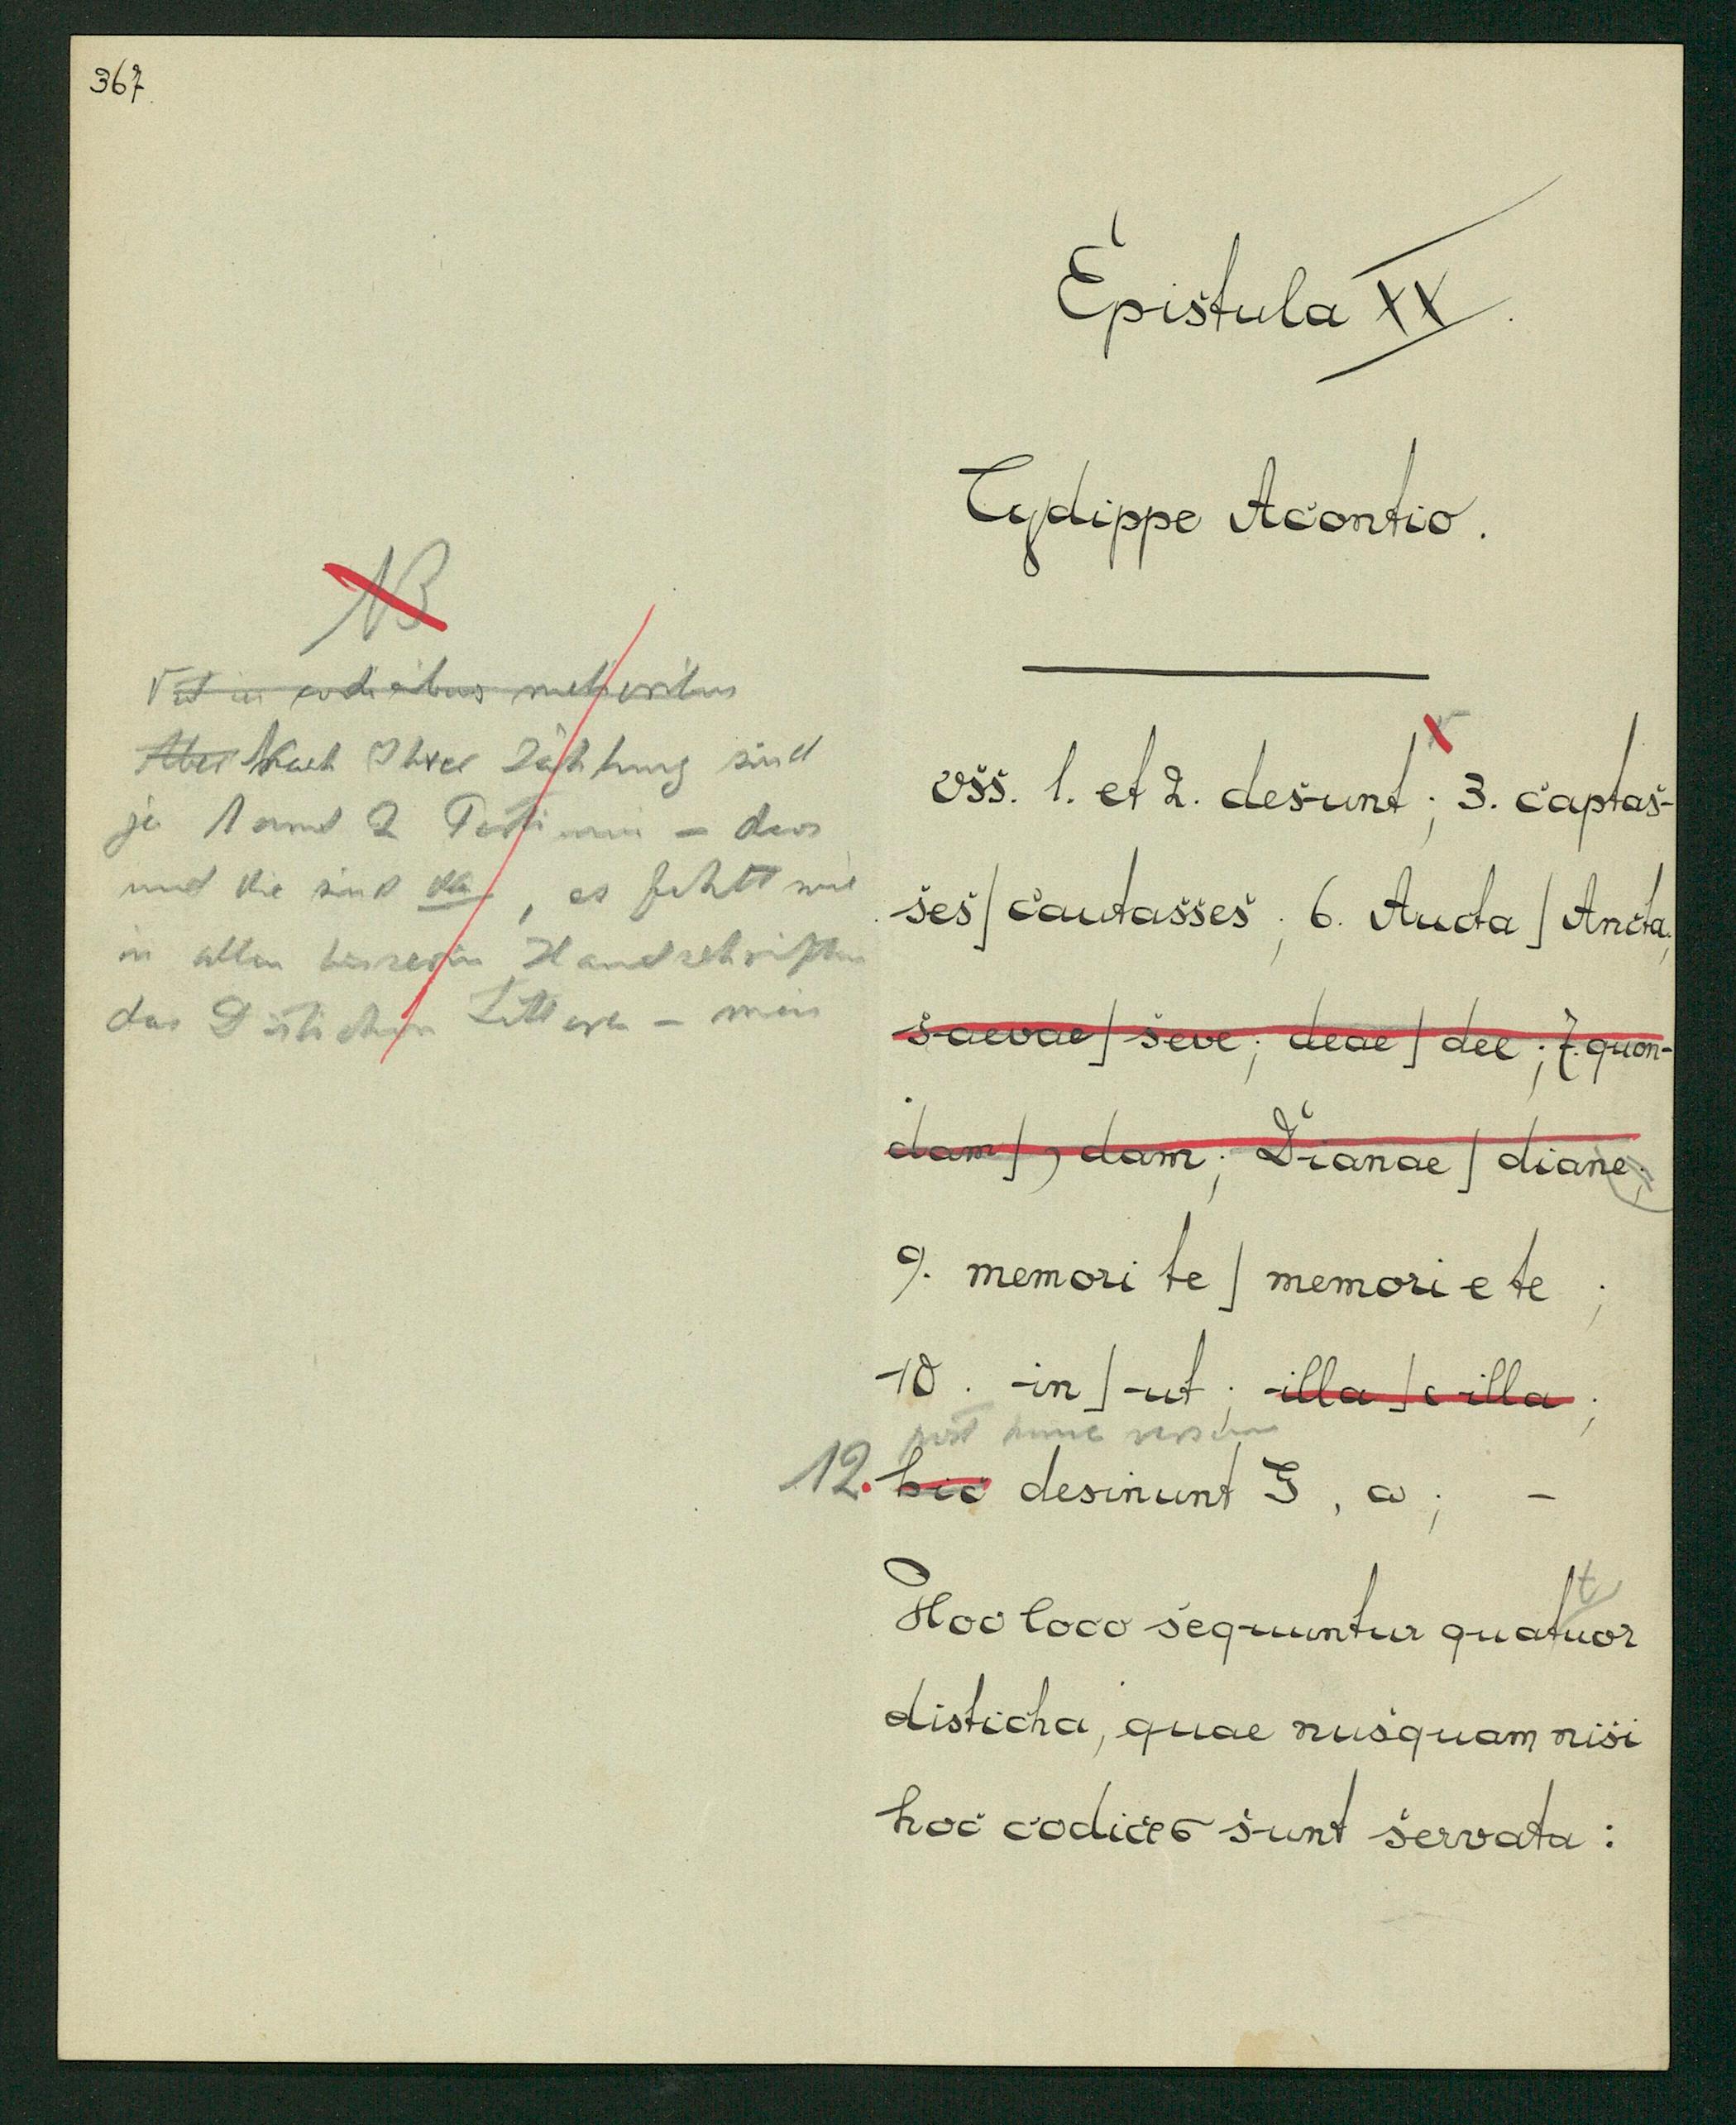 367
Epistula XX.
Cydippe Acontio.
NB
Vst in codicibus melioribus
Aber Nach Ihrer Zählung sind
ja 1 und 2 Pertimui – deos
und die sind da, es fehlt wie
in allen besseren Handschriften
das Distichon Littera – meis
vss. 1. et 2. desunt; 3. captas-
ses] cautasses; 6. Aucta] Ancta;
saevae] seve; deae] dee; 7. quon-
dam] ɔdam; Dianae] diane;
9. memori te] memori e te;
10. in] ut; illa] cilla;
post hunc versum
12. hic desinunt G, ω; –
Hoc loco sequuntur quattuor
disticha, quae nusquam nisi
hoc codice sunt servata: